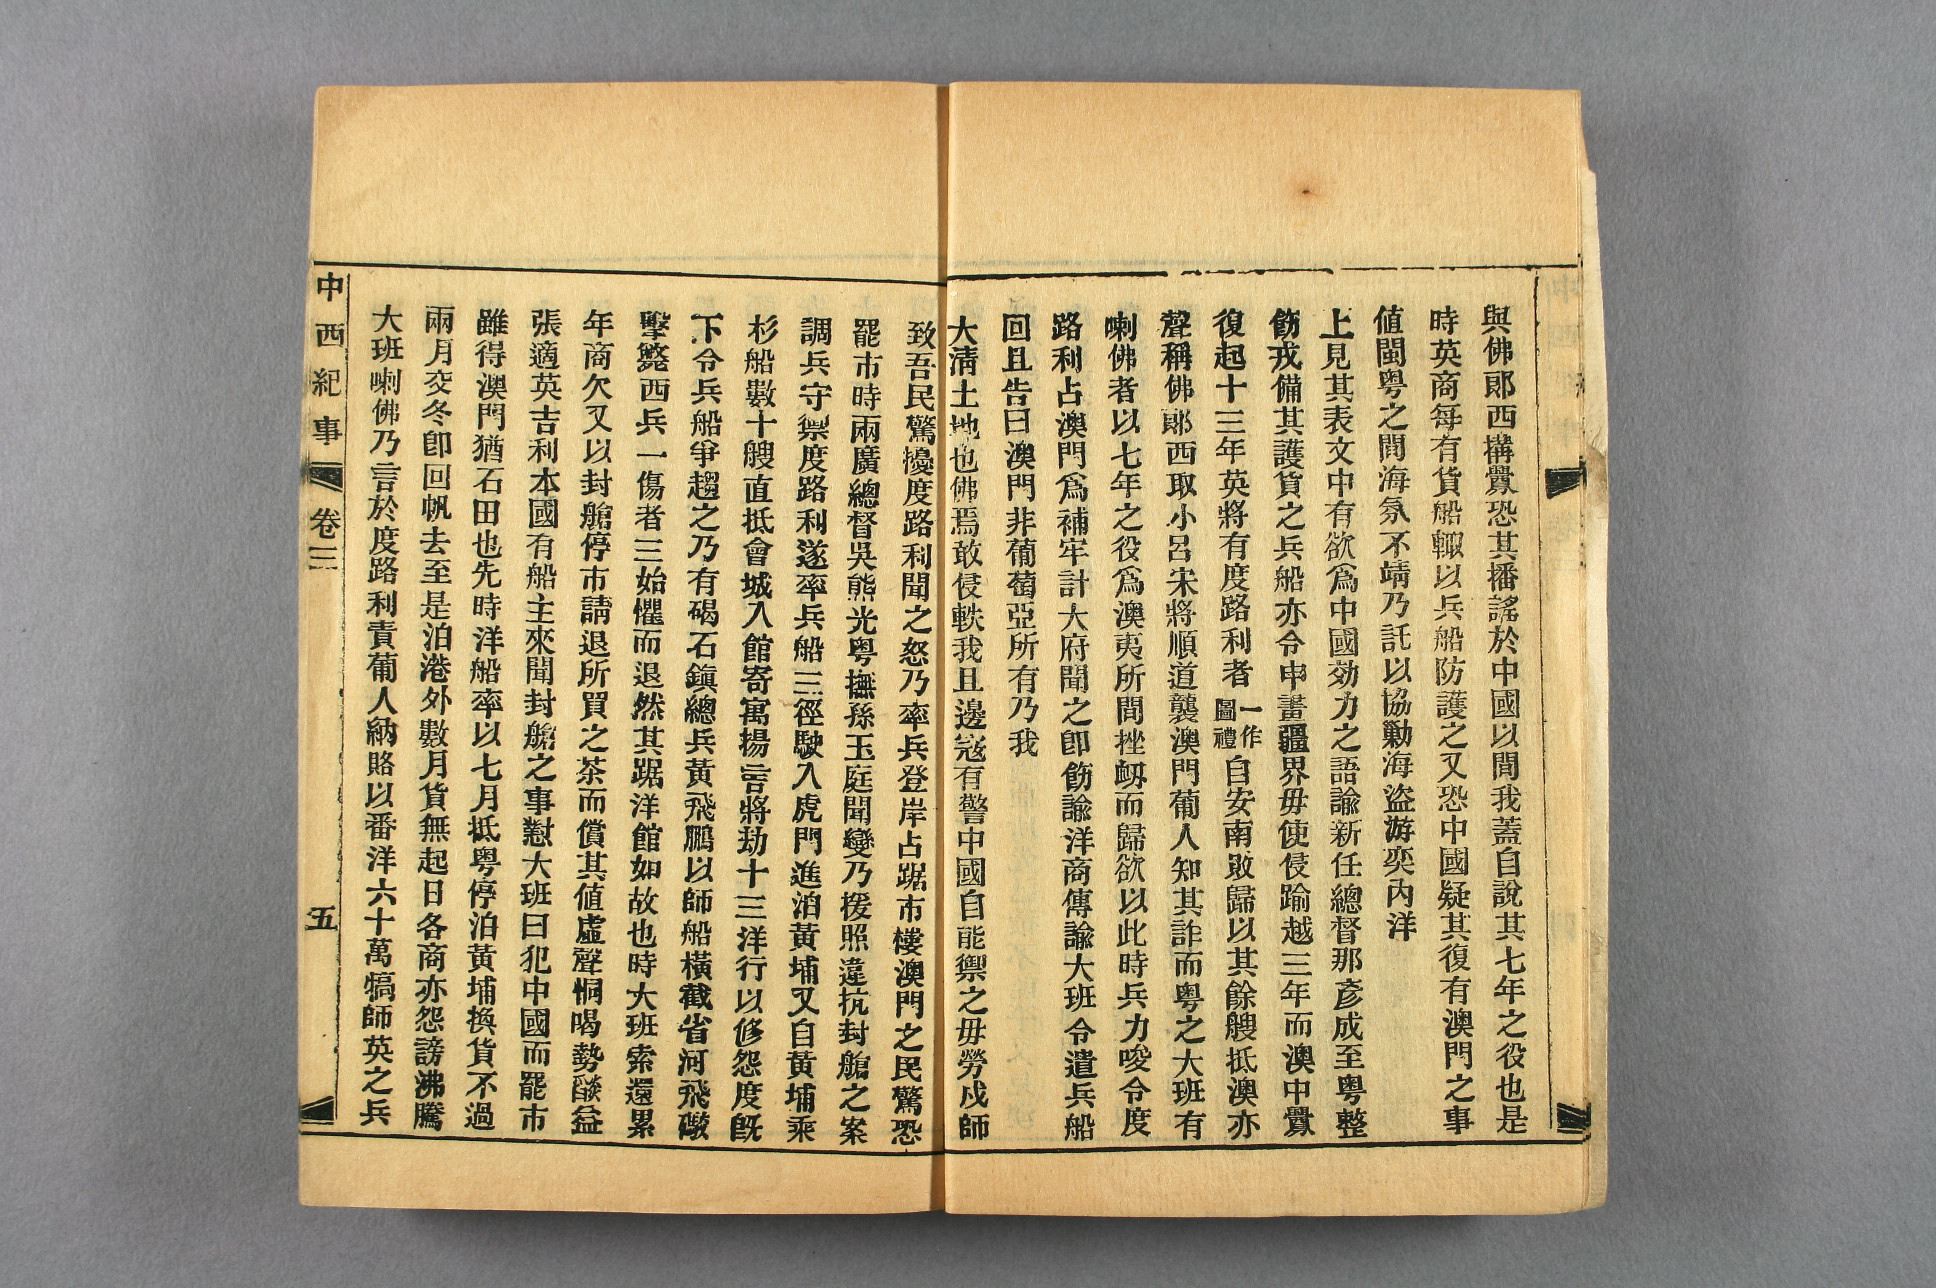 與佛郞西構釁恐其播謠於中國以間我蓋自說其七年之役也是
時英商每有貨船輙以兵船防護之又恐中國疑其復有澳門之事
值閩粤之間海氛不靖乃託以協勦海盜游奕內洋
上見其表文中有欲爲中國効力之語諭新任總督那彥成至粤整
飭戎備其護貨之兵船亦令申畫疆界毋使侵踰越三年而澳中釁
復起十三年英將有度路利者一作圖禮自安南敗歸以其餘艘抵澳亦
聲稱佛郞西取小呂宋將順道襲澳門葡人知其詐而粤之大班有
喇佛者以七年之役爲澳夷所間挫衂而歸欲以此時兵力唆令度
路利占澳門爲補牢計大府聞之卽飭諭洋商傳諭大班令遣兵船
回且告曰澳門非葡萄亞所有乃我
大淸土地也佛焉敢侵軼我且邊寇有警中國自能禦之毋勞戍師
致吾民驚擾度路利聞之怒乃率兵登岸占踞市樓澳門之民驚恐
罷市時兩廣總督吳熊光粤撫孫玉庭聞變乃援照違抗封艙之案
調兵守禦度路利遂率兵船三徑駛入虎門進泊黃埔又自黃埔乘
杉船數十艘直抵會城入館寄寓揚言將劫十三洋行以修怨度旣
下令兵船爭趨之乃有碣石鎭總兵黃飛鵬以師船橫截省河飛礮
擊斃西兵一傷者三始懼而退然其踞洋館如故也時大班索還累
年商欠又以封艙停市請退所買之茶而償其值虛聲恫喝勢燄益
張適英吉利本國有船主來聞封艙之事懟大班曰犯中國而罷市
雖得澳門猶石田也先時洋船率以七月抵粤停泊黃埔換貨不過
兩月交冬卽回帆去至是泊港外數月貨無起日各商亦怨謗沸騰
大班喇佛乃言於度路利責葡人納賂以番洋六十萬犒師英之兵
中西紀事 卷三 五